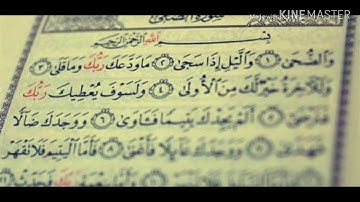 سورة الضحى
KINEMASTER
بسم الله الرحمن الرحيم
وَالضُّحَى ١ وَاللَّيْلِ إِذَا سَجَى ٢ مَا وَدَّعَكَ رَبُّكَ وَمَا قَلَى ٣
وَلَلْآخِرَةُ خَيْرٌ لَّكَ مِنَ الْأُولَى ٤ وَلَسَوْفَ يُعْطِيكَ رَبُّكَ
فَتَرْضَى ٥ أَلَمْ يَجِدْكَ يَتِيمًا فَآوَى ٦ وَوَجَدَكَ ضَالًّا
فَهَدَى ٧ وَوَجَدَكَ عَائِلًا فَأَغْنَى ٨ فَأَمَّا الْيَتِيمَ فَلَا تَقْهَرْ